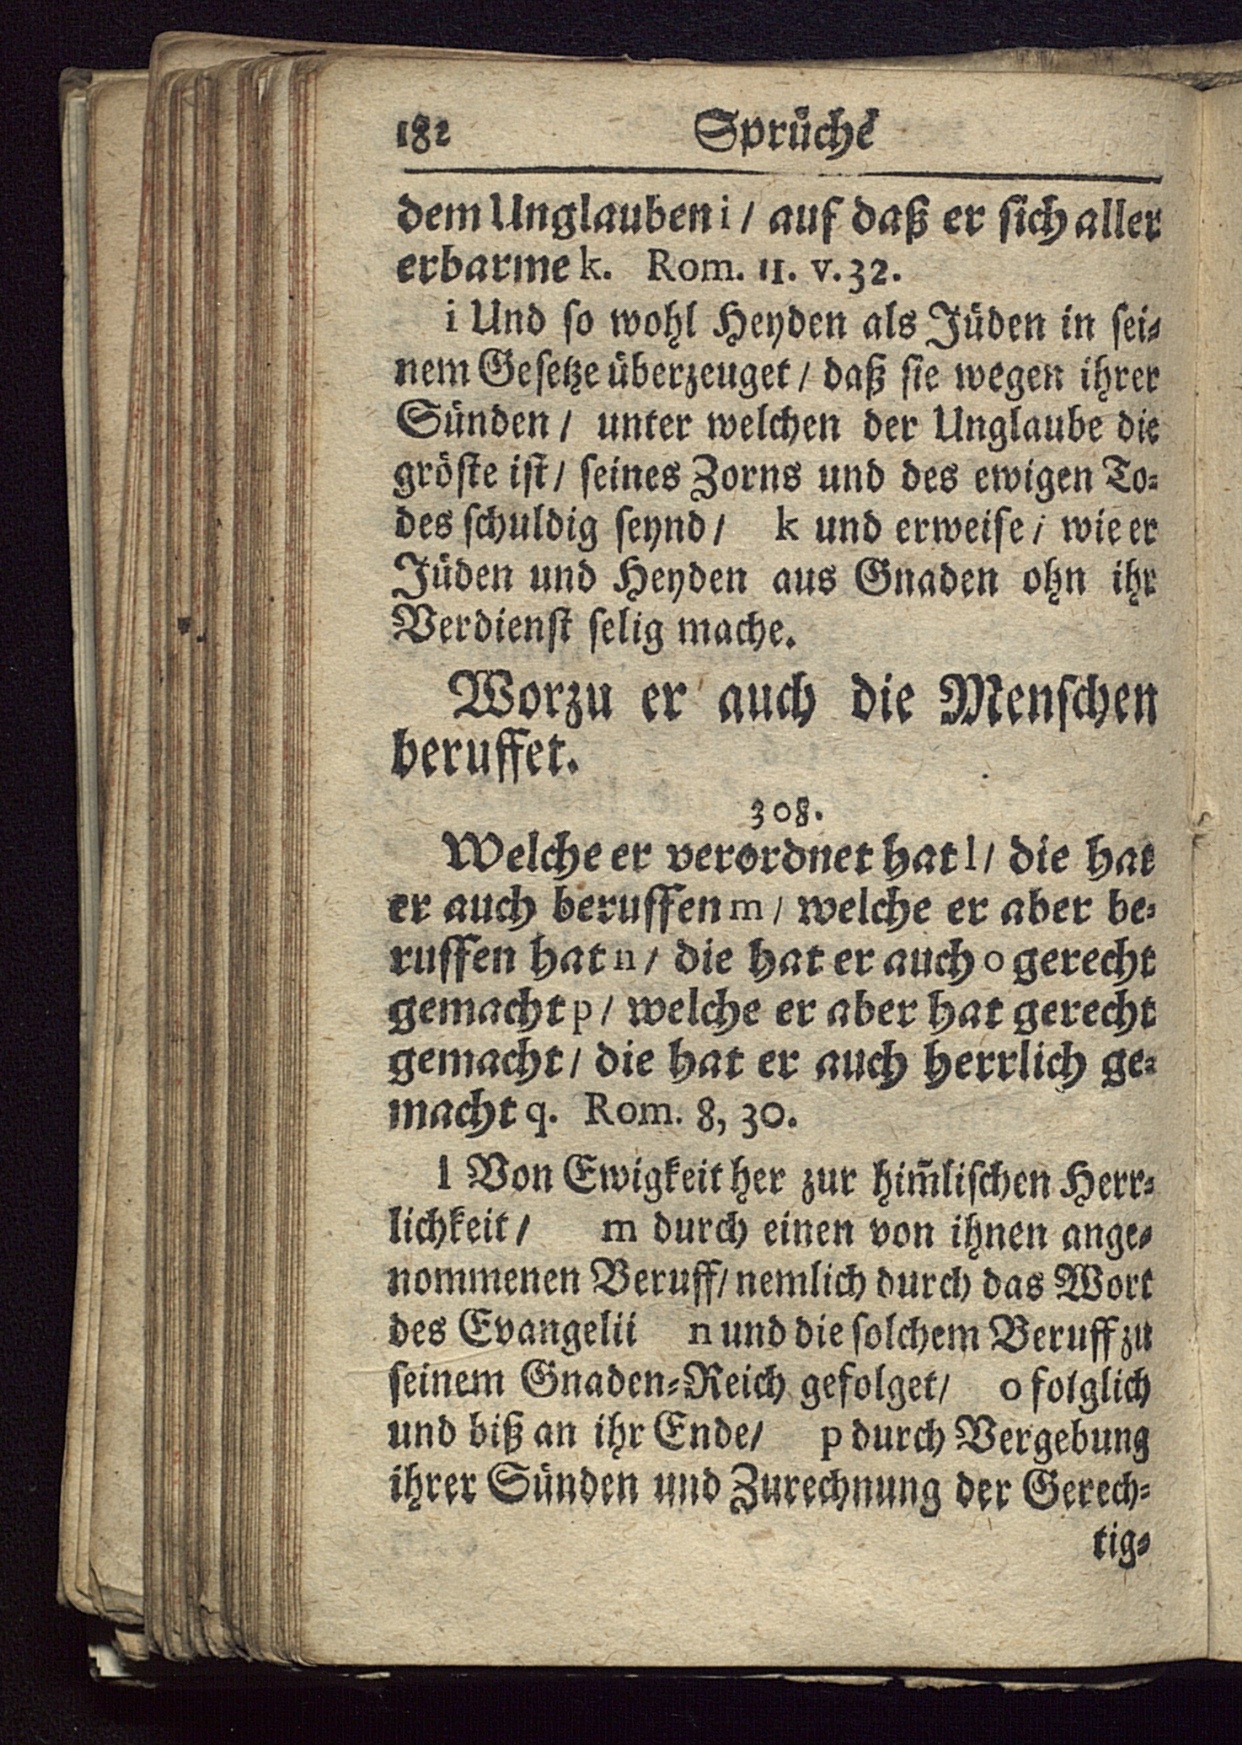 182 Sprüche
dem Unglauben i / auf daß er sich aller
erbarme k. Rom. 11. v. 32.
i Und so wohl Heyden als Jüden in sei-
nem Gesetze überzeuget / daß sie wegen ihrer
Sünden / unter welchen der Unglaube die
gröste ist / seines Zorns und des ewigen To-
des schuldig seynd / k und erweise / wie er
Jüden und Heyden aus Gnaden ohn ihr
Verdienst selig mache.
Worzu er auch die Menschen
beruffet.
308.
Welche er verordnet hat l / die hat
er auch beruffen m / welche er aber be-
ruffen hat n / die hat er auch o gerecht
gemacht p / welche er aber hat gerecht
gemacht / die hat er auch herrlich ge-
macht q. Rom. 8, 30.
l Von Ewigkeit her zur him̃lischen Herr-
lichkeit / m durch einen von ihnen ange-
nommenen Beruff / nemlich durch das Wort
des Evangelii n und die solchem Beruff zu
seinem Gnaden-Reich gefolget / o folglich
und biß an ihr Ende / p durch Vergebung
ihrer Sünden und Zurechnung der Gerech-
tig-